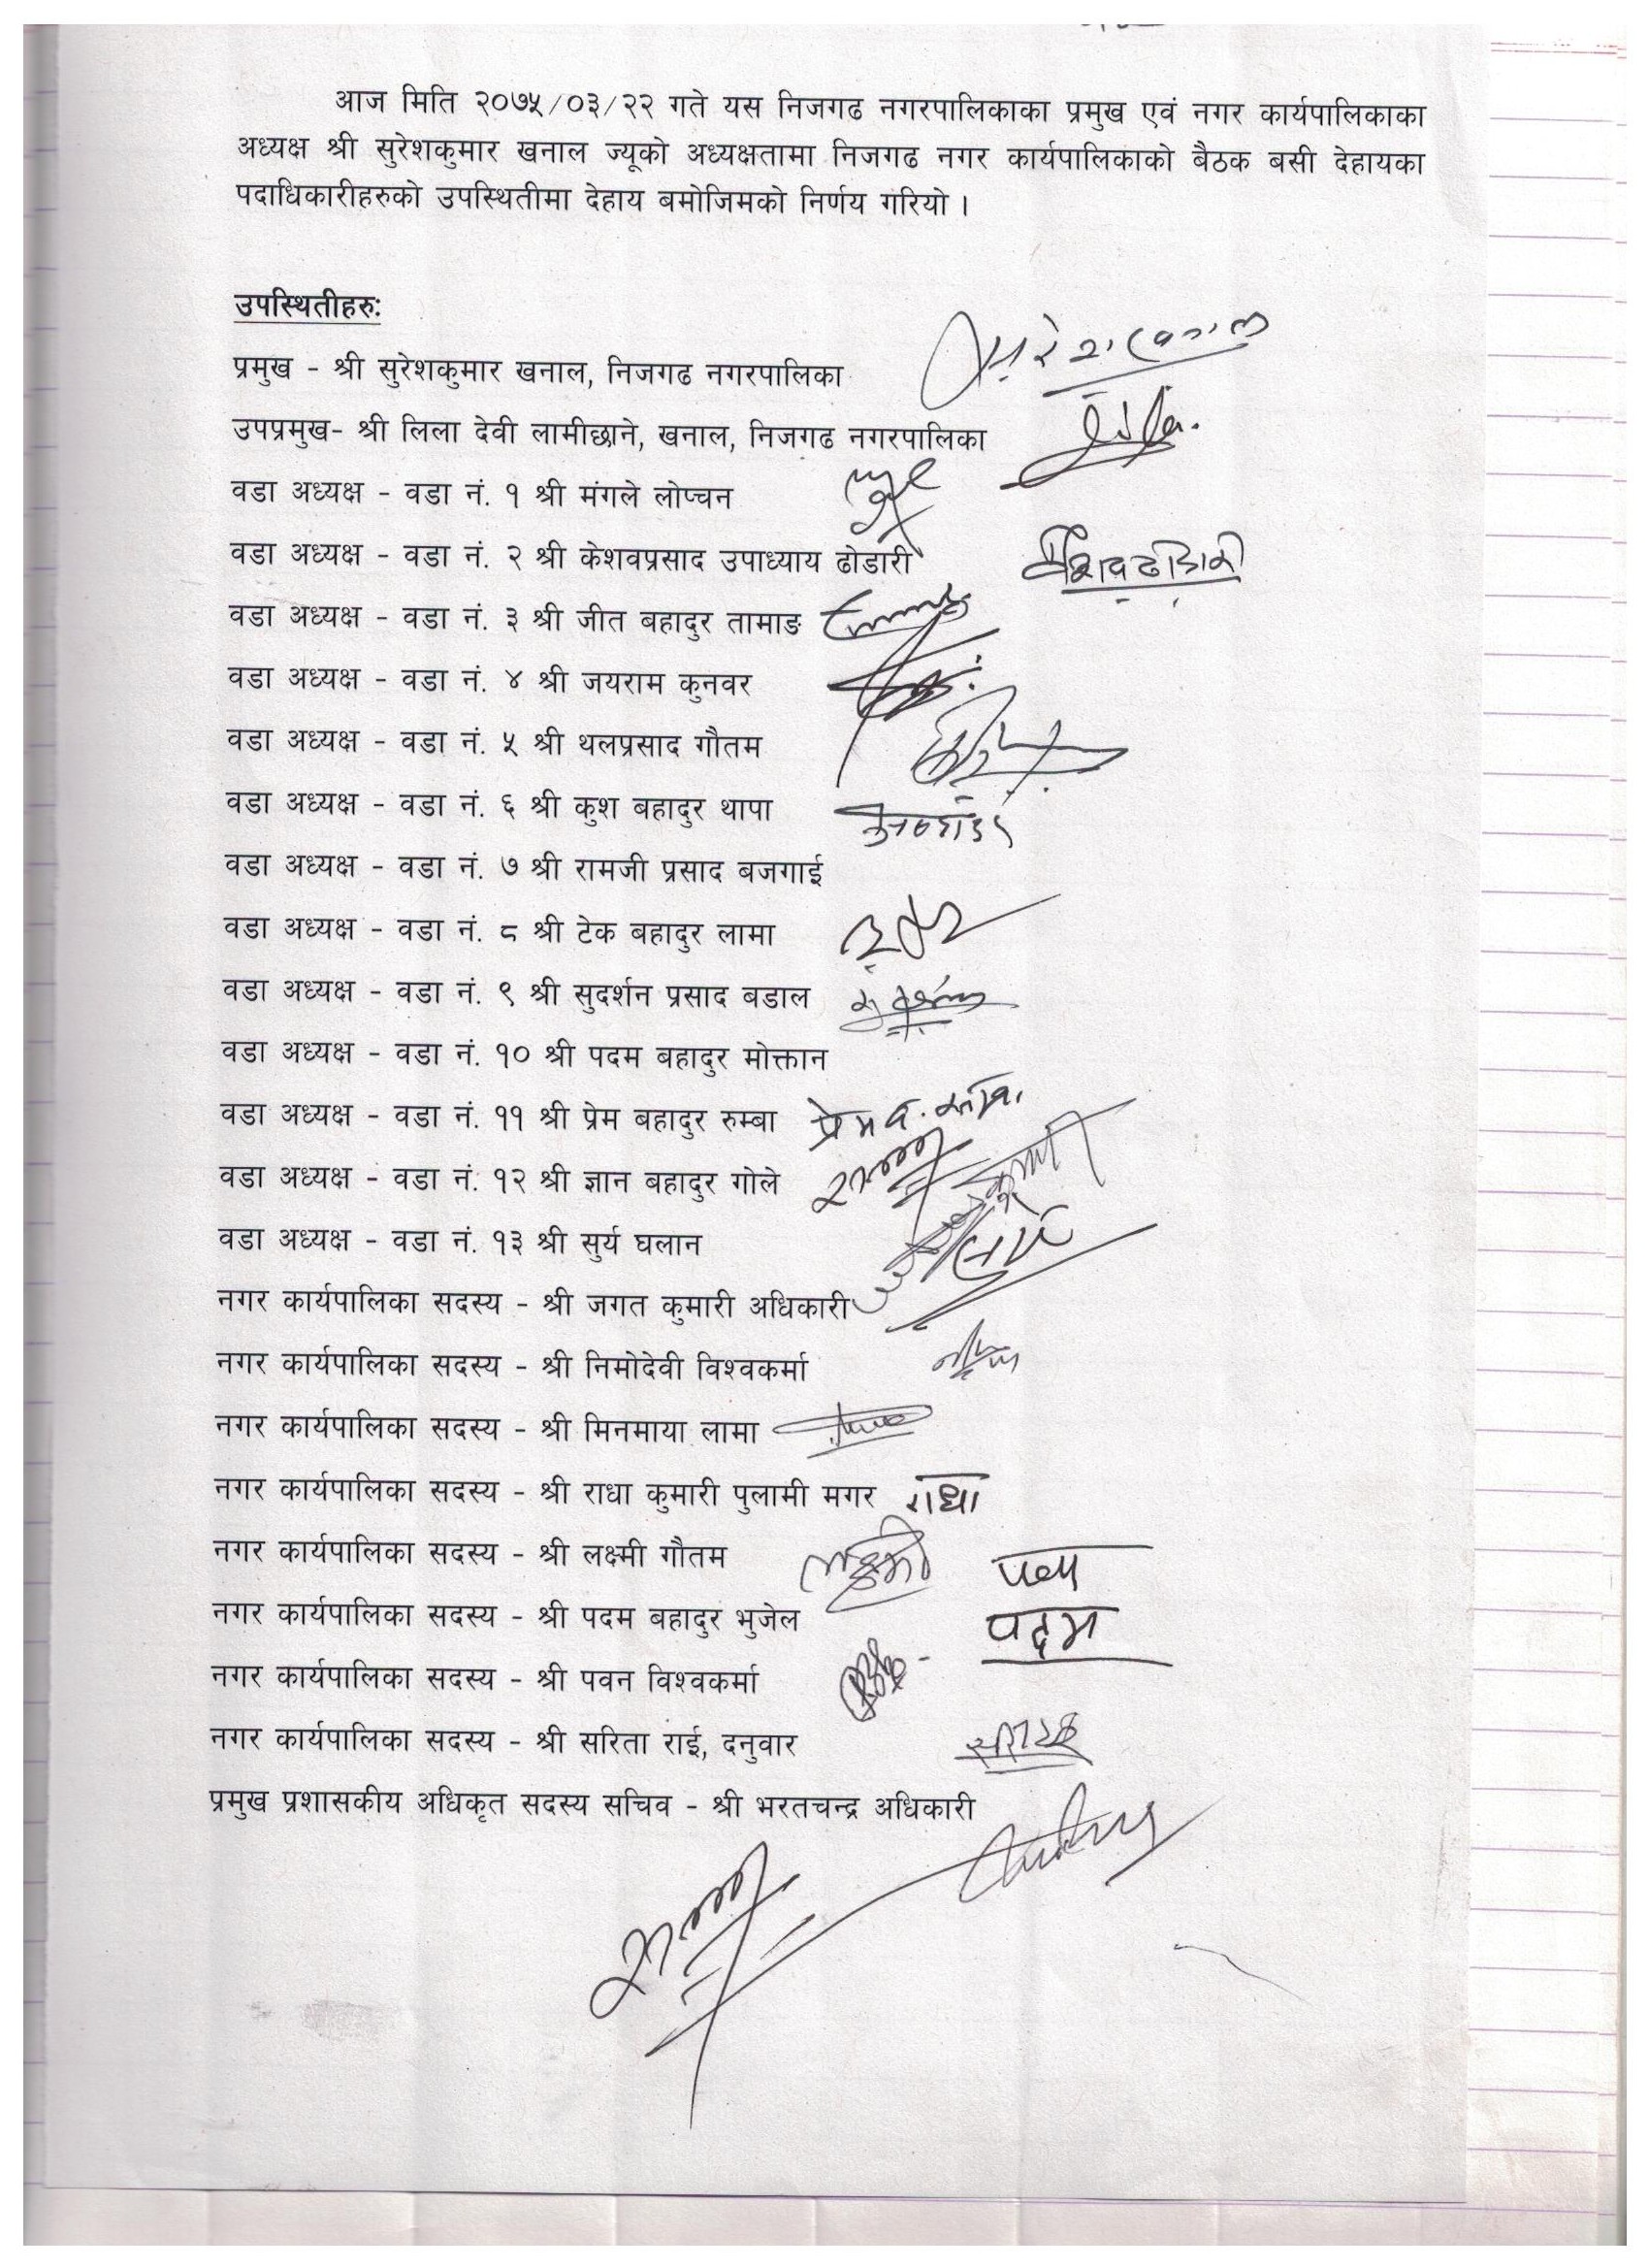 आज मिति २०७५/०३/२२ गते यस निजगढ नगरपालिकाका प्रमुख एवं नगर कार्यपालिकाका
अध्यक्ष श्री सुरेशकुमार खनाल ज्यूको अध्यक्षतामा निजगढ नगर कार्यपालिकाको बैठक बसी देहायका
पदाधिकारीहरुको उपस्थितीमा देहाय बमोजिमको निर्णय गरियो ।
उपस्थितीहरु:
प्रमुख - श्री सुरेशकुमार खनाल, निजगढ नगरपालिका
उपप्रमुख- श्री लिला देवी लामीछाने, खनाल, निजगढ नगरपालिका
वडा अध्यक्ष - वडा नं. १ श्री मंगले लोप्चन
वडा अध्यक्ष - वडा नं. २ श्री केशवप्रसाद उपाध्याय ढोडारी
वडा अध्यक्ष - वडा नं. ३ श्री जीत बहादुर तामाङ
वडा अध्यक्ष - वडा नं. ४ श्री जयराम कुनवर
वडा अध्यक्ष - वडा नं. ५ श्री थलप्रसाद गौतम
वडा अध्यक्ष - वडा नं. ६ श्री कुश बहादुर थापा
वडा अध्यक्ष - वडा नं. ७ श्री रामजी प्रसाद बजगाई
वडा अध्यक्ष - वडा नं. ८ श्री टेक बहादुर लामा
वडा अध्यक्ष - वडा नं. ९ श्री सुदर्शन प्रसाद बडाल
वडा अध्यक्ष - वडा नं. १० श्री पदम बहादुर मोक्तान
वडा अध्यक्ष - वडा नं. ११ श्री प्रेम बहादुर रुम्बा
वडा अध्यक्ष - वडा नं. १२ श्री ज्ञान बहादुर गोले
वडा अध्यक्ष - वडा नं. १३ श्री सुर्य घलान
नगर कार्यपालिका सदस्य - श्री जगत कुमारी अधिकारी
नगर कार्यपालिका सदस्य - श्री निमोदेवी विश्वकर्मा
नगर कार्यपालिका सदस्य - श्री मिनमाया लामा
नगर कार्यपालिका सदस्य - श्री राधा कुमारी पुलामी मगर राधा
नगर कार्यपालिका सदस्य - श्री लक्ष्मी गौतम लक्ष्मी
नगर कार्यपालिका सदस्य - श्री पदम बहादुर भुजेल पदम
नगर कार्यपालिका सदस्य - श्री पवन विश्वकर्मा
नगर कार्यपालिका सदस्य - श्री सरिता राई, दनुवार
प्रमुख प्रशासकीय अधिकृत सदस्य सचिव - श्री भरतचन्द्र अधिकारी